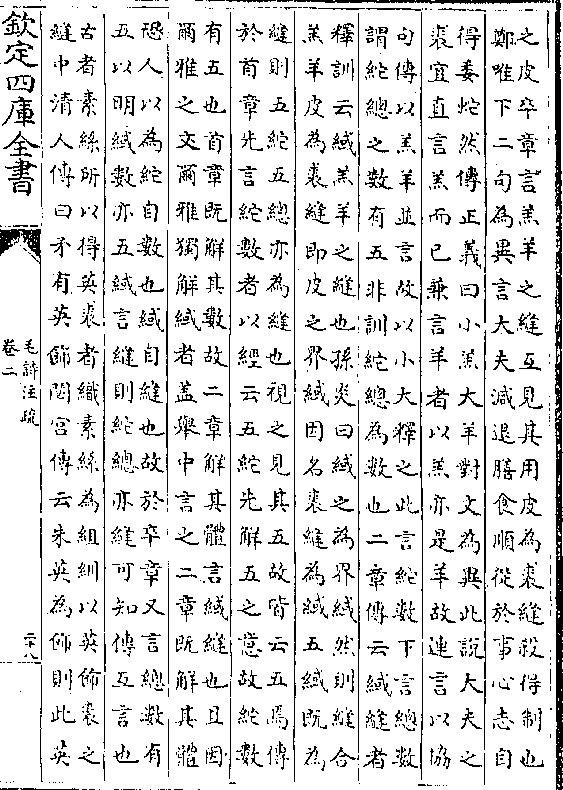 之皮卒章言羔羊之縫互見其用皮為裘縫殺得制也
鄭唯下二句為異言大夫減退膳食順從於事心志自
得委蛇然傳正義曰小羔大羊對文為異此說大夫之
裘宜直言羔而已兼言羊者以羔亦是羊故連言以協
句傳以羔羊並言故以小大釋之此言紽數下言總數
謂紽總之數有五非訓紽總為數也二章傳云緎縫者
釋訓云緎羔羊之縫也孫炎曰緎之為界緎然則縫合
羔羊皮為裘縫即皮之界緎因名裘縫為緎五緎既為
縫則五紽五總亦為縫也視之見其五故皆云五焉傳
於首章先言紽數者以經云五紽先解五之意故紽數
有五也首章既解其數故二章解其體言緎縫也且因
爾雅之文爾雅獨解緎者蓋舉中言之二章既解其體
恐人以為紽自數也緎自縫也故於卒章又言總數有
五以明緎數亦五緎言縫則紽總亦縫可知傳互言也
古者素絲所以得英裘者織素絲為組紃以英飾裘之
縫中清人傳曰矛有英飾閟宮傳云朱英為飾則此英
欽定四庫全書
毛詩注疏
卷二
二十八